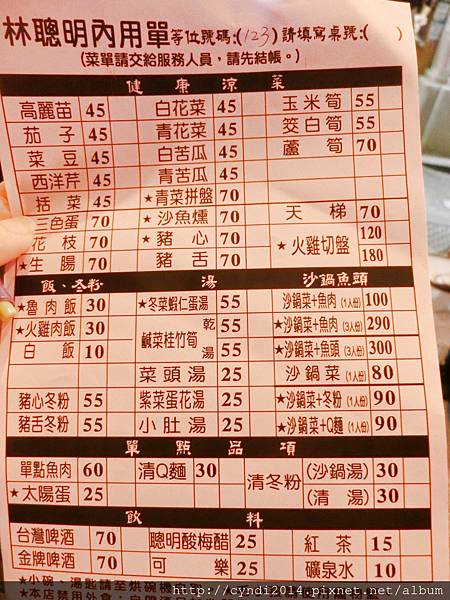 林聰明內用單等位號碼:(123)請填寫桌號:( )
(菜單請交給服務人員，請先結帳。)
健康涼菜
高麗苗 45 白花菜 45 玉米筍 55
茄子 45 青花菜 45 筊白筍 55
菜豆 45 白苦瓜 45 蘆筍 70
西洋芹 45 青苦瓜 45
括菜 45 ★青菜拼盤 70
三色蛋 70 ★沙魚燻 70 天梯 70
花枝 70 ★豬心 70 ★火雞切盤 120
★生腸 70 豬舌 70 180
飯、冬粉 湯 沙鍋魚頭
★魯肉飯 30 ★冬菜蝦仁蛋湯 55 沙鍋菜+魚肉(1人份) 100
★火雞肉飯 30 鹹菜桂竹筍 乾 55 ★沙鍋菜+魚肉(3人份) 290
白飯 10 湯 55 ★沙鍋菜+魚頭(3人份) 300
菜頭湯 25 沙鍋菜(1人份) 80
豬心冬粉 55 紫菜蛋花湯 25 ★沙鍋菜+冬粉(1人份) 90
豬舌冬粉 55 小肚湯 25 ★沙鍋菜+Q麵(1人份) 90
單點品項
單點魚肉 60 清Q麵 30 清冬粉 (沙鍋湯) 30
★太陽蛋 25 (清湯) 30
飲料
台灣啤酒 70 聰明酸梅醋 25 紅茶 15
金牌啤酒 70 可樂 25 礦泉水 10
★小碗、湯匙請至烘碗機
★本店禁用外食
http://cyndi2014.pixnet.net/album